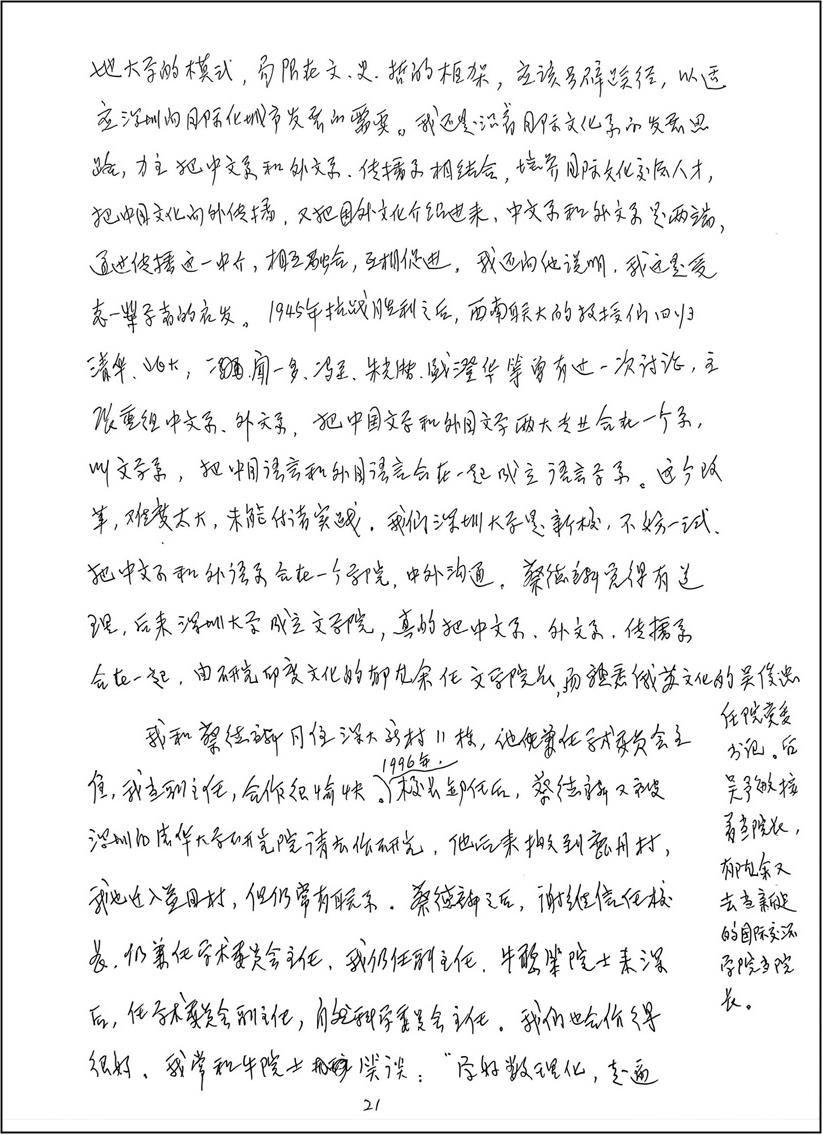 他大学的模式，局限在文.史.哲的框架，应该另辟蹊径，以适
应深圳向国际化城市发展的需要。我还是沿着国际文化系的发展思
路，力主把中文系和外文系、传播系相结合，培养国际文化交流人才，
把中国文化向外传播，又把国外文化介绍进来，中文系和外文系是两端，
通过传播这一中介，相互融合，互相促进。我还向他说明，我这是受
老一辈学者的启发。1945年抗战胜利之后，西南联大的教授们回归
清华、北大，闻一多、冯至、朱光潜、盛澄华等曾有过一次讨论，主
张重组中文系、外文系，把中国文学和外国文学两大专业合在一个系，
叫文学系，把中国语言和外国语言合在一起成立语言学系。这个改
革，难度太大，未能付诸实践。我们深圳大学是新校，不妨一试、
把中文系和外语系合在一个学院，中外沟通。蔡德麟觉得有道
理，后来深圳大学成立文学院，真的把中文系、外文系、传播系
合在一起，由研究印度文化的郁龙余任文学院长，而熟悉俄苏文化的吴俊忠
任院党委
书记。后
吴予敏接
着当院长，
郁龙余又
去当新建
的国际交流
学院当院
长。
我和蔡德麟同住深大新村11栋，他便兼任学术委员会主
任，我当副主任，合作很愉快。1996年.校长卸任后，蔡德麟又被
深圳的清华大学研究院请去作研究，他后来搬到益田村，
我也迁入益田村，但仍常有联系。蔡德麟之后，谢维信任校
长，仍兼任学术委员会主任，我仍任副主任，牛憨笨院士来深
后，任学术委员会副主任，自然科学委员会主任。我们也合作得
很好。我常和牛院士谈谈：“学好数理化，走遍
21